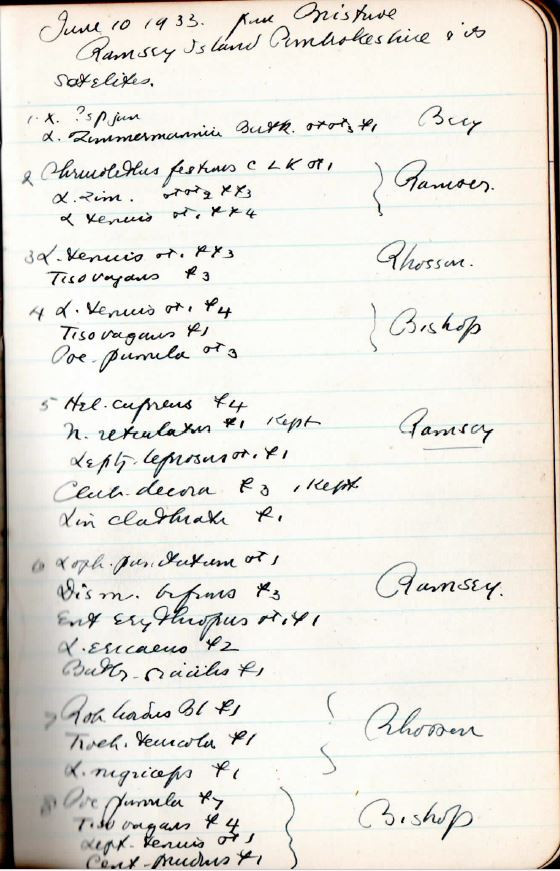 June 10 1933. per Bristowe
Ramsey Island Pembrokeshire & its
satelites.
1. X. ? sp jun
L. Zimmermannii Bertk. ♂♂3 ♀1 Bery
2 Chrmolethus festivus C L K ♂1
L. Zim. ♂♂2 ♀♀3 Ramsey.
L tenuis ♂1 ♀♀4
3 L. tenuis ♂1 ♀♀3 Rhosson.
Tiso vagans ♀3
4 L. tenuis ♂1 ♀4
Tiso vagans ♀1 Bishop
Poe. pumila ♂3
5 Hel. cupreus ♀4
N. reticulatus ♀1 Kept Ramsey
Lepty. leprosus ♂1 ♀1
Club. decora ♀3 1 Kept
Lin clathrata ♀1
6 Loph. punctatum ♂1
Dism. bifrons ♀3 Ramsey.
Ent erythropus ♂1 ♀1
L. ericaeus ♀2
Bathy. gracilis ♀1
7 Rob. lividus Bl ♀1
Troch. ruricola ♀1 Rhosson
L. nigriceps ♀1
8 Poe pumila ♀7
Tiso vagans ♀4 Bishop
Lept. tenuis ♂1
Cent. prudens ♀1